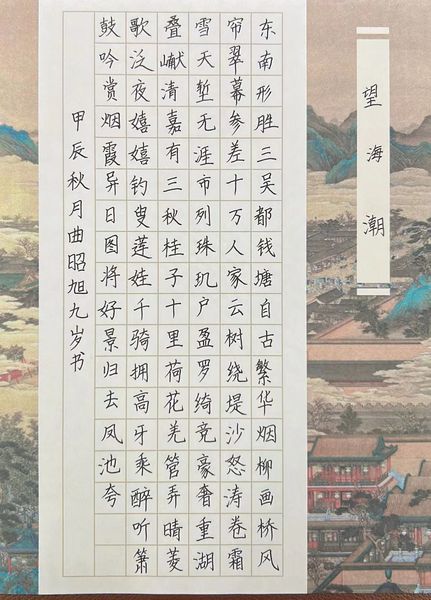 望海潮
东南形胜三吴都钱塘自古繁华烟柳画桥风
帘翠幕参差十万人家云树绕堤沙怒涛卷霜
雪天堑无涯市列珠玑户盈罗绮竞豪奢重湖
叠𪩘清嘉有三秋桂子十里荷花羌管弄晴菱
歌泛夜嬉嬉钓叟莲娃千骑拥高牙乘醉听箫
鼓吟赏烟霞异日图将好景归去凤池夸
甲辰秋月曲昭旭九岁书